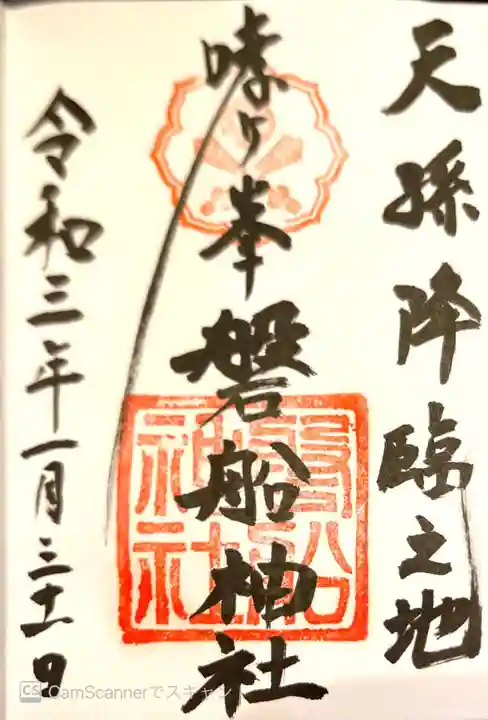 天孫降臨之地
哮ヶ峯 磐船神社
磐船神社
令和三年一月三十一日
CS CamScannerでスキャン